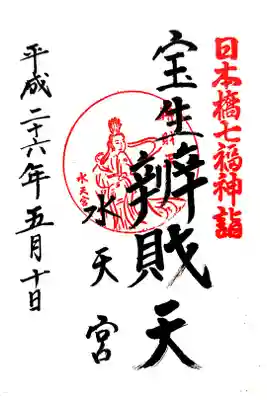 日本橋七福神詣
宝生辨財天
水天宮
水天宮
平成二十六年五月十日